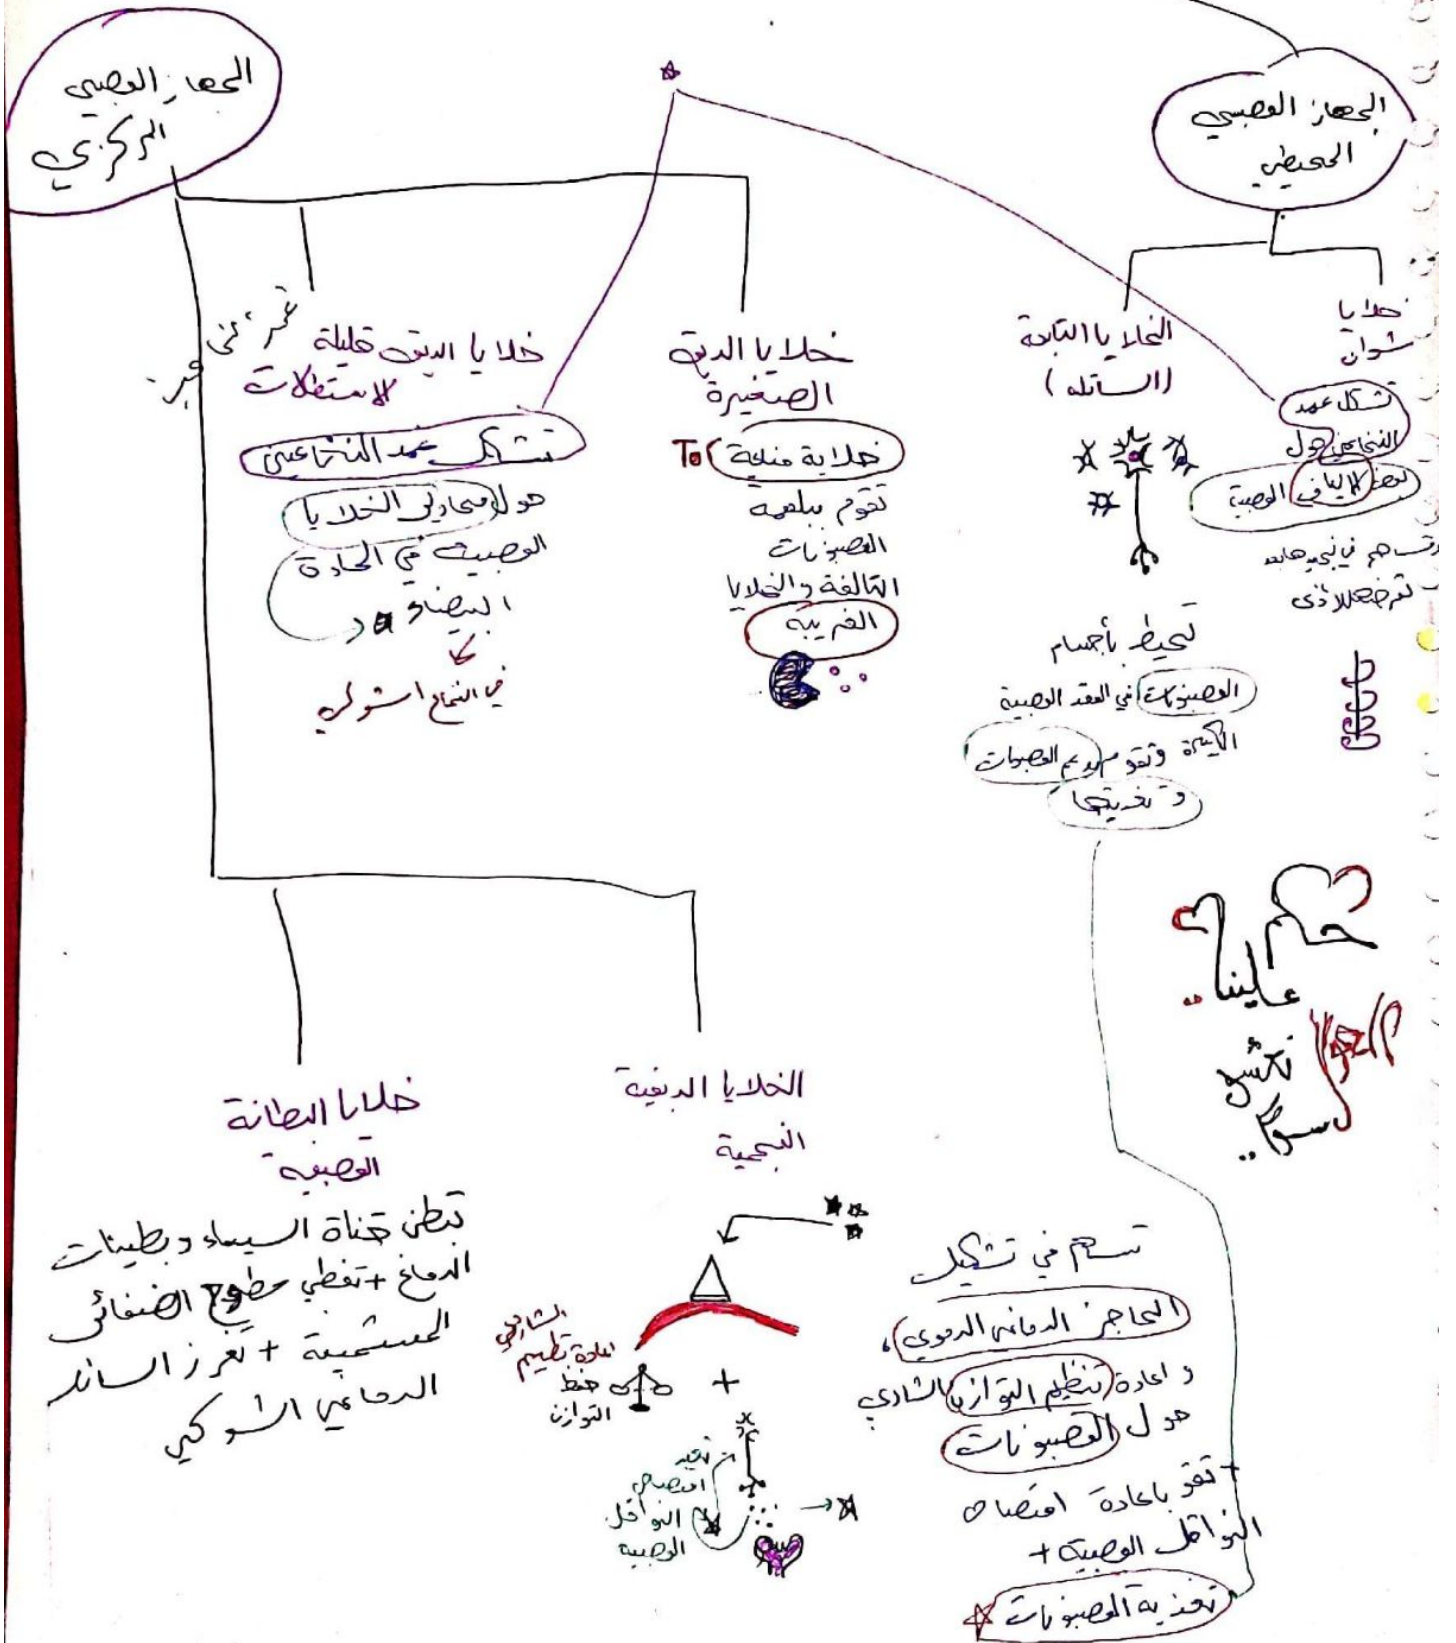 الجهاز العصبي
المحيطي
الجهاز العصبي
المركزي
خلايا
شوان
تشكل غمد
النخاعين حول
بعض الالياف العصبية
تعرضها للأذى
الخلايا التابعة
(الساتلة)
تحيط بأجسام
العصبونات في العقد العصبية
الكبيرة وتقوم بدعم العصبونات
وتغذيتها
خلايا الدبق
الصغيرة
خلاية مناعية To
تقوم ببلعمة
العصبونات
التالفة والخلايا
الغريبة
خلايا الدبق قليلة
الاستطالات
تشكل غمد النخاعين
حول محاوير الخلايا
العصبية في المادة
البيضاء
في النخاع الشوكي
حلم
علينا..
نعيشو
سوا..
خلايا البطانة
العصبية
تبطن قناة السيساء وبطينات
الدماغ + تغطي سطوح الضفائر
المشيمية + تفرز السائل
الدماغي الشوكي
الخلايا الدبقية
النجمية
الشاردي
اعادة تنظيم
حفظ
التوازن
+
تعيد
امتصاص
النواقل
العصبية
تساهم في تشكيل
الحاجز الدماغي الدموي،
و اعادة تنظيم التوازن الشاردي
حول العصبونات
+ تقو باعادة امتصاص
النواقل العصبية +
تغذية العصبونات